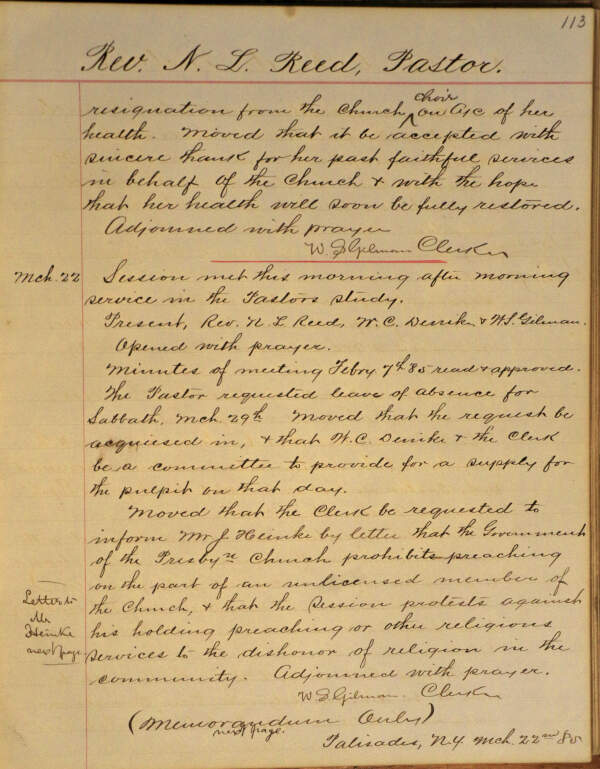 113
Rev. N. L. Reed, Pastor.
resignation from the Church choir on A/c of her
health. Moved that it be accepted with
sincere thank for her past faithful services
in behalf of the Church & with the hope
that her health will soon be fully restored.
Adjourned with prayer
W. S. Gilman Clerk
Mch. 22 Session met this morning after morning
service in the Pastors study.
Present, Rev. N. L Reed, W. C. Deinike & W. S. Gilman.
Opened with prayer.
Minutes of meeting Febry 7th 85 read & approved.
The Pastor requested leave of absence for
Sabbath, Mch. 29th Moved that the request be
acquiesed in, & that W. C. Deinike & the Clerk
be a committee to provide for a supply for
the pulpit on that day.
Moved that the Clerk be requested to
inform Mr J. Heinke by letter that the Government
of the Presbyn Church prohibits preaching
on the part of an unlicensed member of
the Church, & that the Session protests against
his holding preaching or other religious
services to the dishonor of religion in the
community. Adjourned with prayer.
Letter to
Mr
Heinke
next page
W. S. Gilman. Clerk
(Memorandum Only)
next page.
Palisades, N.Y. Mch. 22nd 85